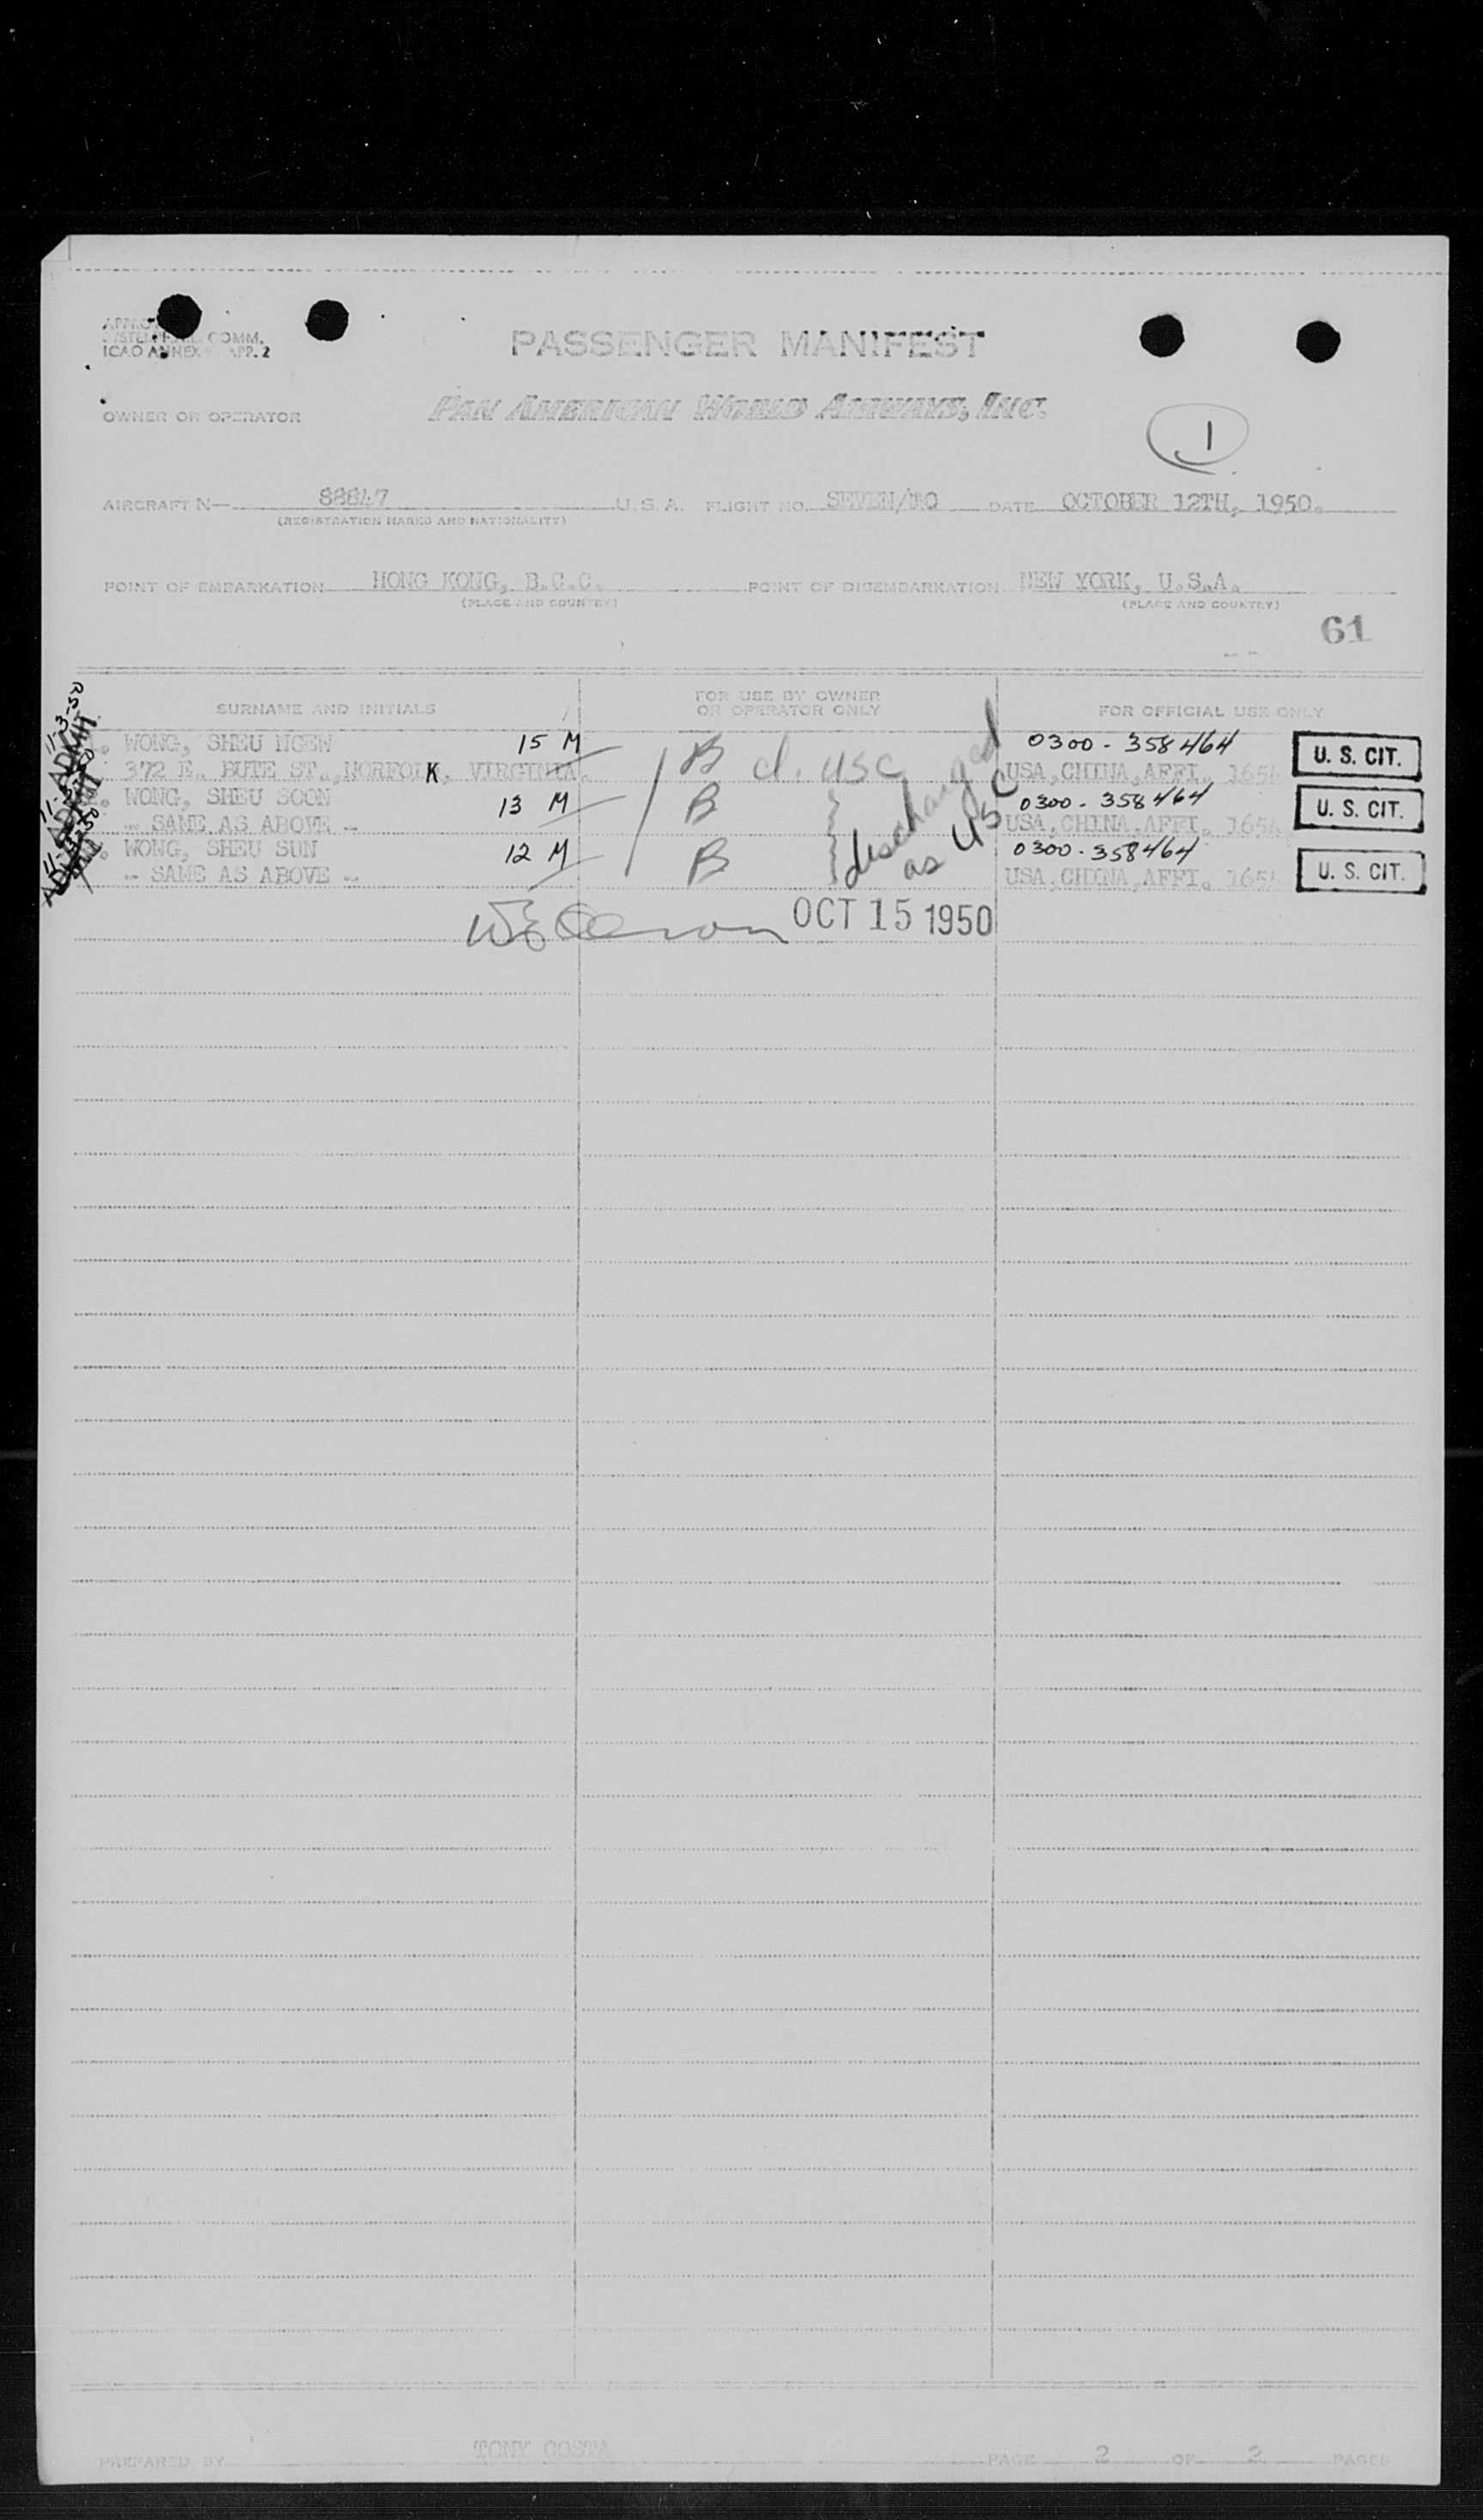 PASSENGER MANIFEST
COMM.
ICAO ANNEX 9 APP. 2
OWNER OR OPERATOR PAN AMERICAN WORLD AIRWAYS, INC.
1
AIRCRAFT N— 88847 U.S.A. FLIGHT NO. SEVEN/ DATE OCTOBER 12TH, 1950.
(REGISTRATION MARKS AND NATIONALITY)
POINT OF EMBARKATION HONG KONG, B.C.C. POINT OF DISEMBARKATION NEW YORK, U.S.A.
(PLACE AND COUNTRY) (PLACE AND COUNTRY)
61
SURNAME AND INITIALS FOR USE BY OWNER OR OPERATOR ONLY FOR OFFICIAL USE ONLY
11-3-50 ADMIT
WONG, SHEU NGEW 15 M B cl. USC 0300-358464 U. S. CIT.
372 E. BUTE ST., NORFOLK, VIRGINIA. USA, CHINA, AFFI. 165
WONG, SHEU SOON 13 M B 0300-358464 U. S. CIT.
- SAME AS ABOVE - USA, CHINA, AFFI. 165
WONG, SHEU SUN 12 M B 0300-358464 U. S. CIT.
- SAME AS ABOVE - USA, CHINA, AFFI. 165
discharged
as USC
OCT 15 1950
PREPARED BY TONY COSTA PAGE 2 OF 2 PAGES